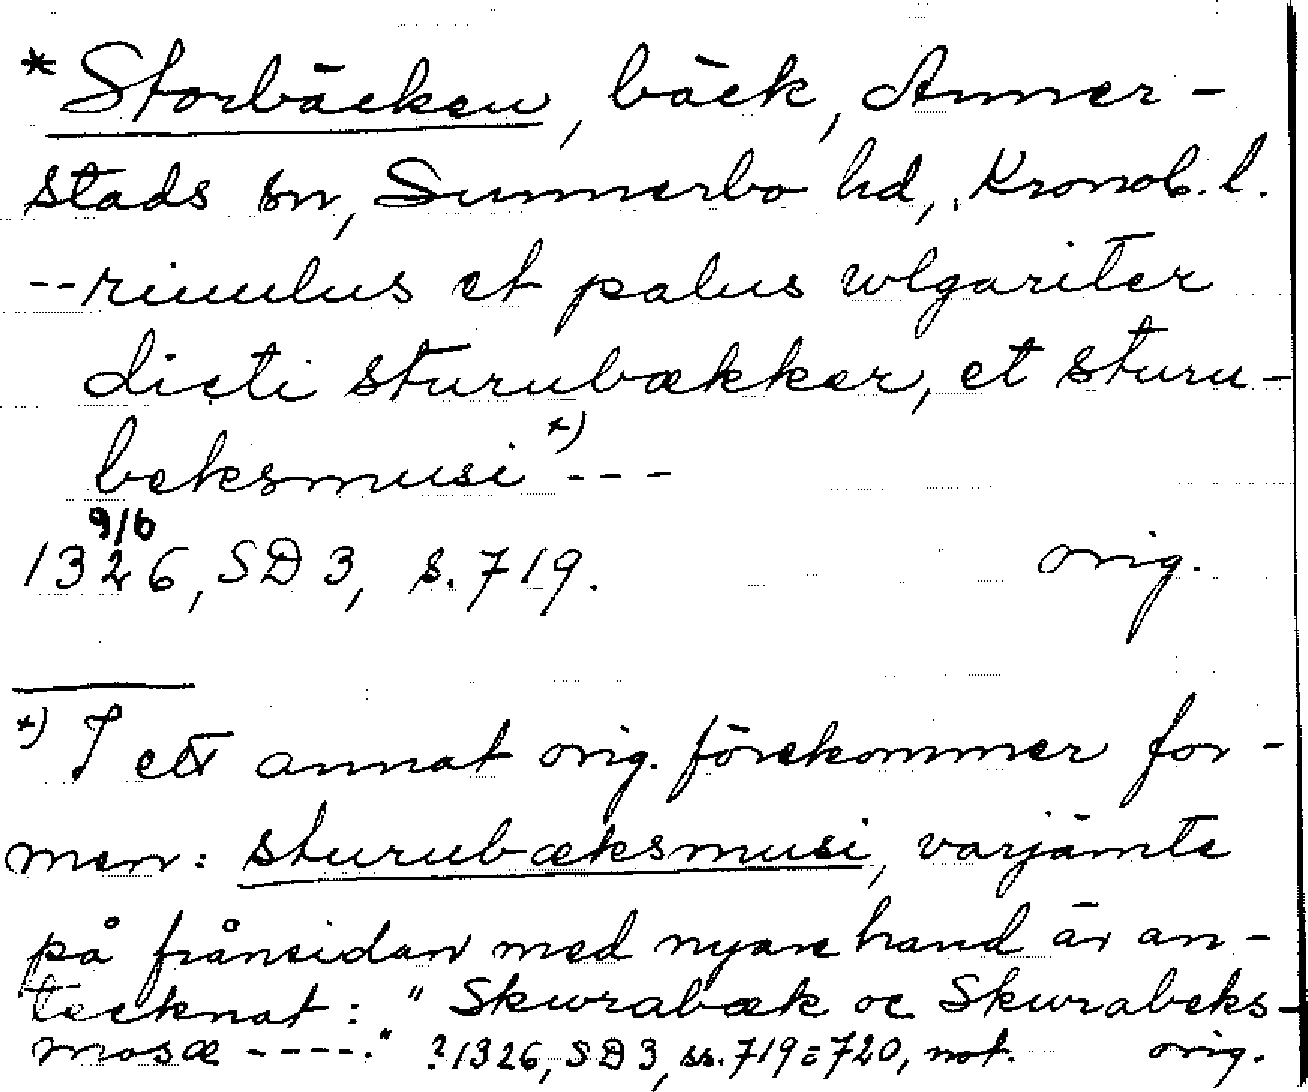 * Storbäcken, bäck, Anner-
stads sn, Sunnerbo hd, Kronob. l.
--riuulus et palus wlgariter
dicti sturubækker, et sturu-
beksmusi x) ---
9/6
1326, SD 3, s. 719. orig.
x) I ett annat orig. förekommer for-
men: sturubæksmusi, varjämte
på frånsidan med nyare hand är an-
tecknat: "Skurabæk oc Skurabeks-
mosæ ----." ?1326, SD 3, ss. 719=720, not. orig.